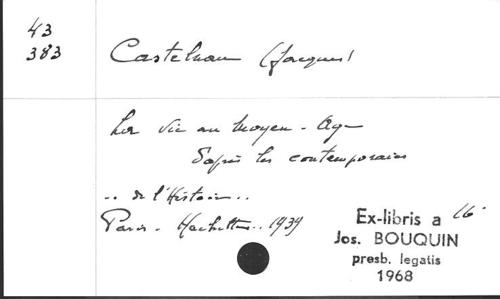 43
383
Castelnau (Jacques)
La vie au Moyen-Age
d'après les contemporains
.. de l'Histoire ..
Paris - Hachette .. 1939
16
Ex-libris a
Jos. BOUQUIN
presb. legatis
1968